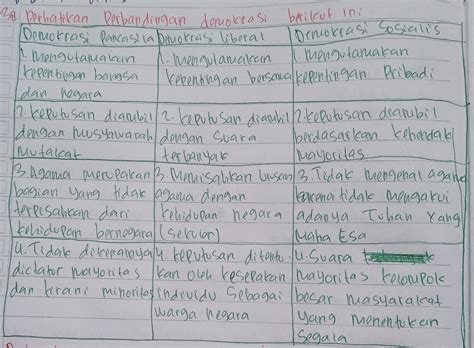 38 Perhatikan Perbandingan demokrasi berikut ini
Demokrasi Pancasila
1. Mengutamakan
kepentingan bangsa
dan negara
2. keputusan diambil
dengan musyawarah
mufakat
3. Agama merupakan
bagian yang tidak
terpisahkan dari
kehidupan bernegara
4. Tidak dikenalnya
dictator mayoritas
dan tirani minoritas
Demokrasi liberal
1. Mengutamakan
kepentingan bersama
2. keputusan diambil
dengan suara
terbanyak
3. Memisahkan urusan
agama dengan
kehidupan negara
(sekuler)
4. keputusan ditentu
kan oleh kesepakan
individu sebagai
warga negara
Demokrasi Sosialis
1. Mengutamakan
kepentingan Pribadi
2. keputusan diambil
berdasarkan kehendak
mayoritas
3. Tidak mengenal agama
karena tidak mengakui
adanya Tuhan Yang
Maha Esa
4. Suara
mayoritas kelompok
besar masyarakat
yang menentukan
segala